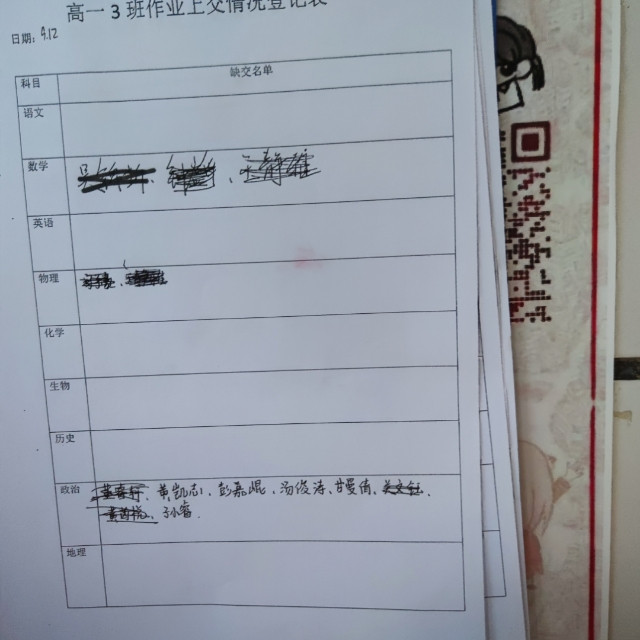 高一3班作业上交情况登记表
日期：9.12
科目 缺交名单
语文
数学
英语
物理
化学
生物
历史
政治 黄凯志、彭嘉焜、冯俊涛、甘曼倩、
地理